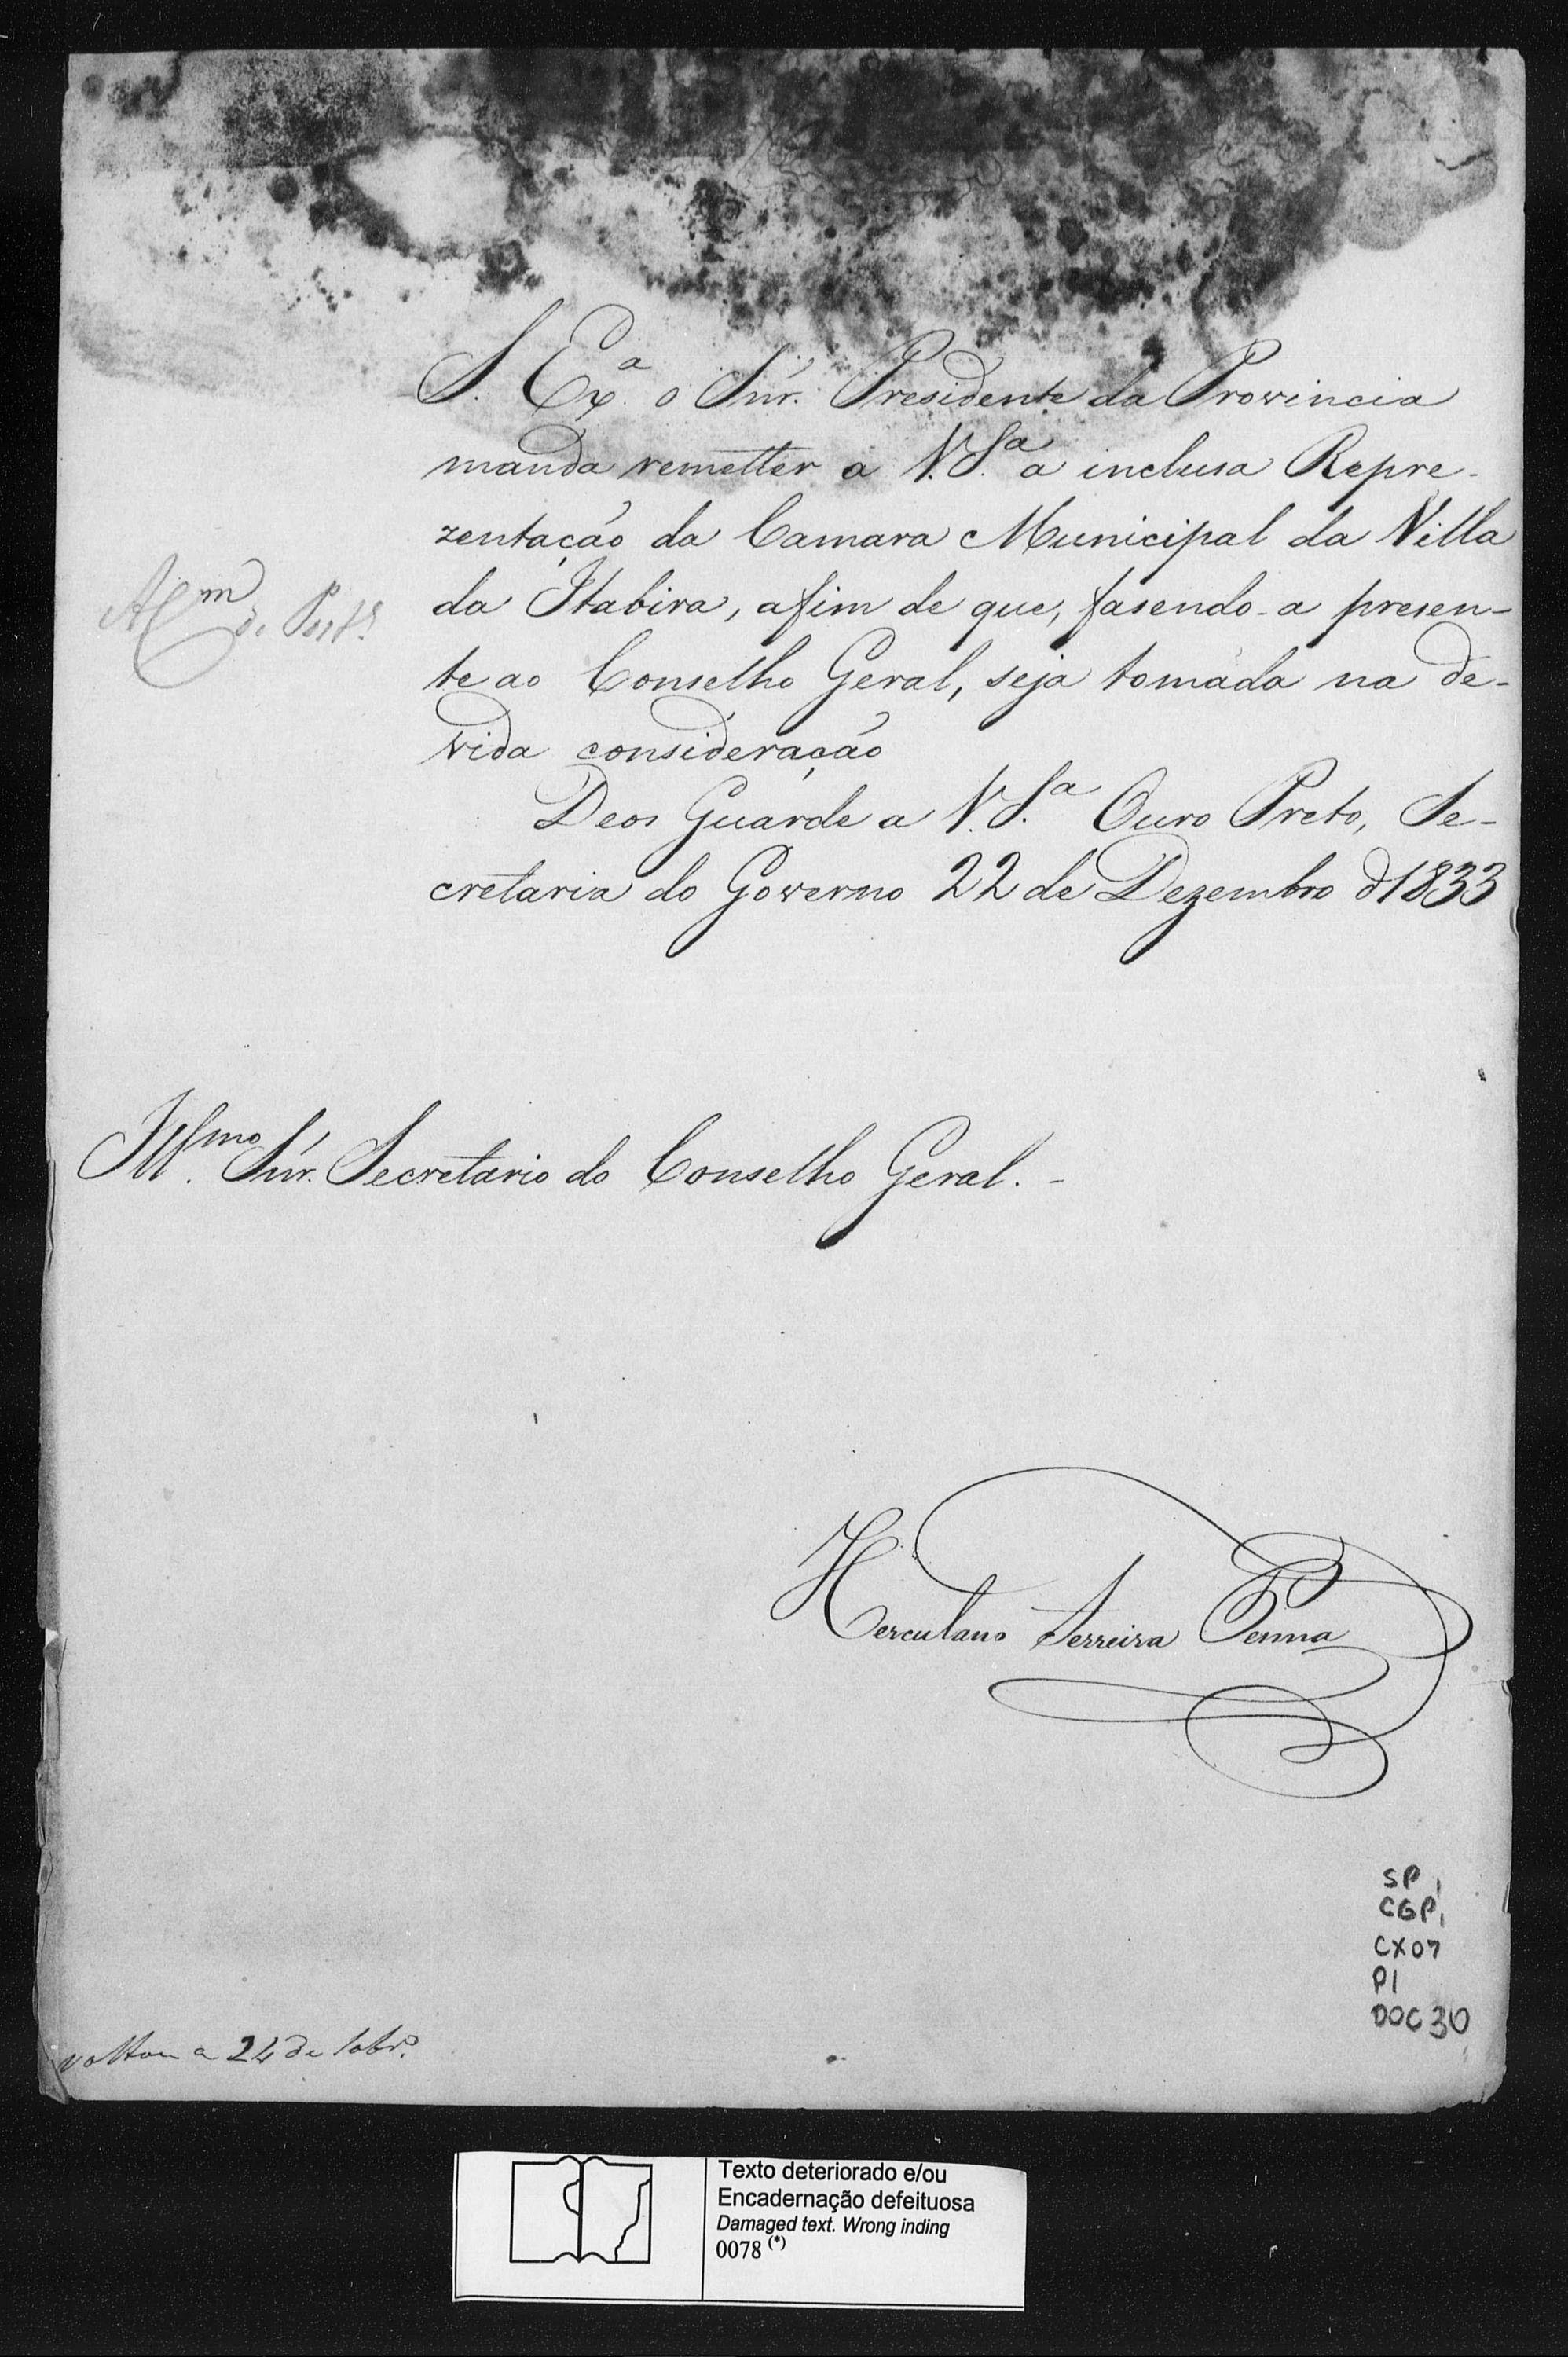 S. Ex.ª o Snr. Presidente da Provincia
manda remetter a V. S.ª a inclusa Repre-
zentação da Camara Municipal da Villa
da Itabira, afim de que, fasendo-a presen-
te ao Conselho Geral, seja tomada na de-
vida consideração
Deos Guarde a V. S.ª Ouro Preto, Se-
cretaria do Governo 22 de Dezembro d 1833
Ill.mo Snr. Secretario do Conselho Geral. -
Herculano Ferreira Penna
SP,
CGP,
CX07
P1
DOC 30
a 24 de
Texto deteriorado e/ou
Encadernação defeituosa
Damaged text. Wrong inding
0078 (*)